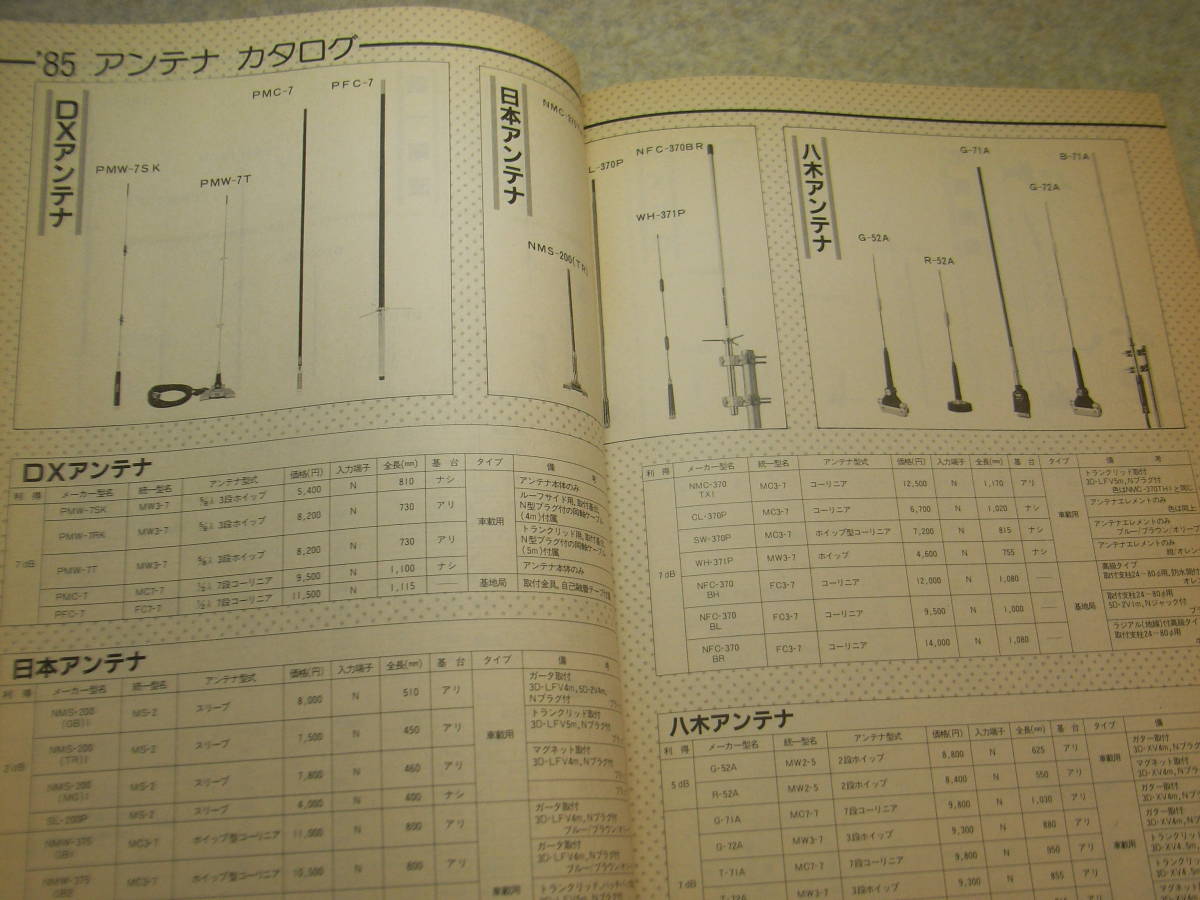 '85 アンテナ カタログ
DXアンテナ
PMW-7SK
PMW-7T
PMC-7
PFC-7
日本アンテナ
NMS-200(TR)
L-370P
NFC-370BR
WH-371P
八木アンテナ
G-52A
R-52A
G-71A
G-72A
B-71A
DXアンテナ
利得 メーカー型名 統一型名 アンテナ型式 価格(円) 入力端子 全長(㎜) 基台 タイプ 備考
7dB
PMW-7SK MW3-7 ⅝λ 3段ホイップ 5,400 N 810 ナシ 車載用 アンテナ本体のみ
PMW-7RK MW3-7 ⅝λ 3段ホイップ 8,200 N 730 アリ ルーフサイド用,取付基台,
N型プラグ付の同軸ケーブル
(4m)付属
PMW-7T MW3-7 ⅝λ 3段ホイップ 8,200 N 730 アリ トランクリッド用,取付基台,
N型プラグ付の同軸ケーブル
(5m)付属
PMC-7 MC7-7 ½λ 7段コーリニア 9,500 N 1,100 ナシ アンテナ本体のみ
PFC-7 FC7-7 ½λ 7段コーリニア 11,500 N 1,115 基地局 取付金具,自己融着テープ付属
日本アンテナ
利得 メーカー型名 統一型名 アンテナ型式 価格(円) 入力端子 全長(㎜) 基台 タイプ 備考
2dB 車載用
NMS-200 MS-2 スリーブ 8,000 N 510 アリ ガータ取付
3D-LFV4m,5D-2V4m,
Nプラグ付
NMS-200
(TR)I MS-2 スリーブ 7,500 N 450 アリ トランクリッド取付
3D-LFV5m,Nプラグ付
NMS-200
(MG)I MS-2 スリーブ 7,800 N 460 アリ マグネット取付
3D-LFV4m,Nプラグ付
SL-200P MS-2 スリーブ 4,000 N 400 ナシ
NMW-375 MC3-7 ホイップ型コーリニア 11,000 N 800 アリ ガータ取付
3D-LFV4m,Nプラグ付
ブルー/ブラウン/オレ
NMW-375 MC3-7 ホイップ型コーリニア 10,500 N 800 アリ ガータ取付
3D-LFV4m,Nプラグ付
ブルー/ブラウン/オレ
車載用
利得 メーカー型名 統一型名 アンテナ型式 価格(円) 入力端子 全長(㎜) 基台 タイプ 備考
7dB
NMC-370
TX1 MC3-7 コーリニア 12,500 N 1,170 アリ 車載用 トランクリッド取付
3D-LFV5m,Nプラグ付
色はNMC-370THIと同じ
CL-370P MC3-7 コーリニア 6,700 N 1,020 ナシ アンテナエレメントのみ
色は同上
SW-370P MC3-7 ホイップ型コーリニア 7,200 N 815 ナシ アンテナエレメントのみ
ブルー/ブラウン/オリーブ
WH-371P MW3-7 ホイップ 4,600 N 755 ナシ アンテナエレメントのみ
NFC-370
BH FC3-7 コーリニア 12,000 N 1,080 基地局 高級タイプ
取付支柱24〜80φ用,
NFC-370
BL FC3-7 コーリニア 9,500 N 1,000 取付支柱24〜80φ用
5D-2V1m,Nジャック付
NFC-370
BR FC3-7 コーリニア 14,000 N 1,080 ラジアル(地線)付高級タイプ
取付支柱24〜80φ用
八木アンテナ
利得 メーカー型名 統一型名 アンテナ型式 価格(円) 入力端子 全長(㎜) 基台 タイプ 備
5dB
G-52A MW2-5 2段ホイップ 8,800 N 625 アリ 車載用 ガター取付
3D-XV4m,Nプラ
R-52A MW2-5 2段ホイップ 8,400 N 550 アリ マグネット取付
3D-XV4m,Nプラ
7dB 車載用
G-71A MC7-7 7段コーリニア 9,800 N 1,030 アリ ガター取付
3D-XV4m,Nプ
G-72A MW3-7 3段ホイップ 9,300 N 880 アリ ガター取付
3D-XV4m,Nプ
T-71A MC7-7 7段コーリニア 9,800 N 950 アリ トランクリッ
3D-XV4.5m,
T-72A MW3-7 3段ホイップ 9,300 N 855 アリ トランクリッ
3D-XV4.5m